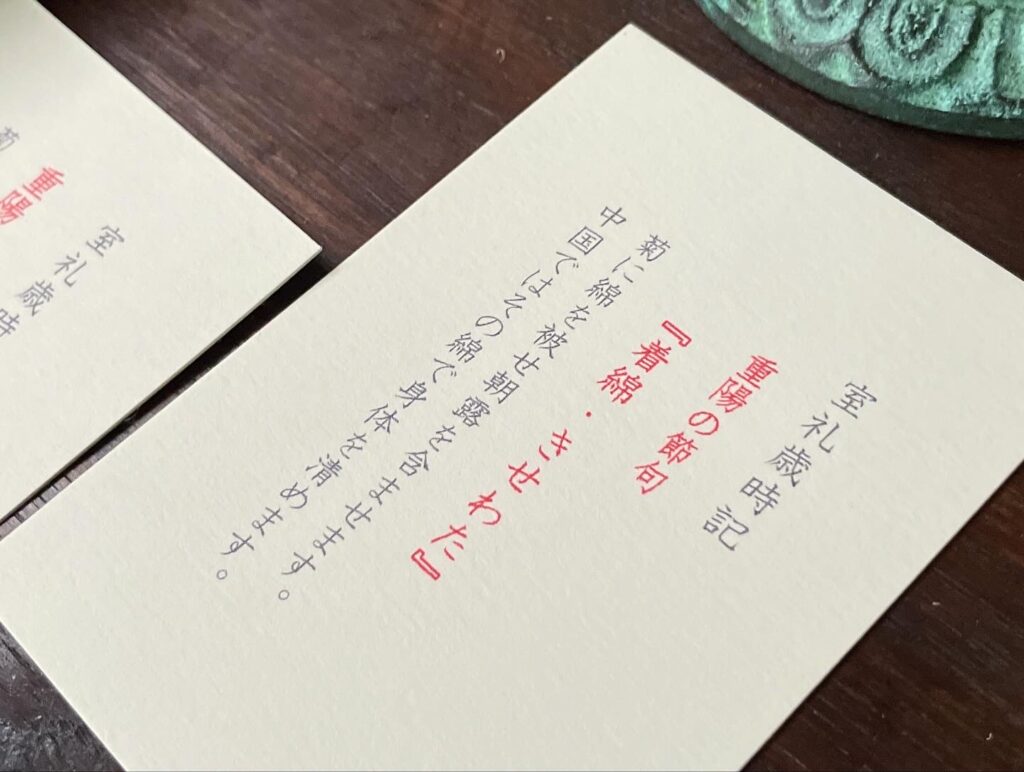 室礼歳時記
重陽の節句
『着綿・きせわた』
菊に綿を被せ朝露を含ませます。
中国ではその綿で身体を清めます。
室礼歳時
重陽
菊